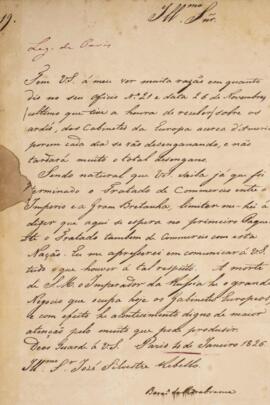 19.
Illmo Snr
Leg. de Paris
Tem V.S. a meu ver muita razão em quanto
dis no seu officio No 21 e data 26 de Novembro
(ultimo que tive a honra de receber) sobre os
ardis, dos Cabinetes da Europa acerca d'America
porem cada dia se vão desenganando, e não
tardará muito o total desengano.
Sendo natural que V.S. saiba já que foi
terminado o Tratado de Commercio entre o
Imperio e a Gran Bretanha, limitar-me-hei á
dizer que aqui se espera no primeiro Paque-
te o Tratado tambem de Commercio com esta
Nação. Eu me apressarei em comunicar á V.S.
tudo o que houver á tal respeito. A morte
de S.M. o Imperador da Russia he o grande
Negocio que occupa hoje os Gabinetes Europeos
e com effeito he acontecimento digno de maior
attenção pelo muito que pode produzir.
Deos Guarde á V.S. Paris 4 de Janeiro 1826
Illmo Sr José Silvestre Rebello.